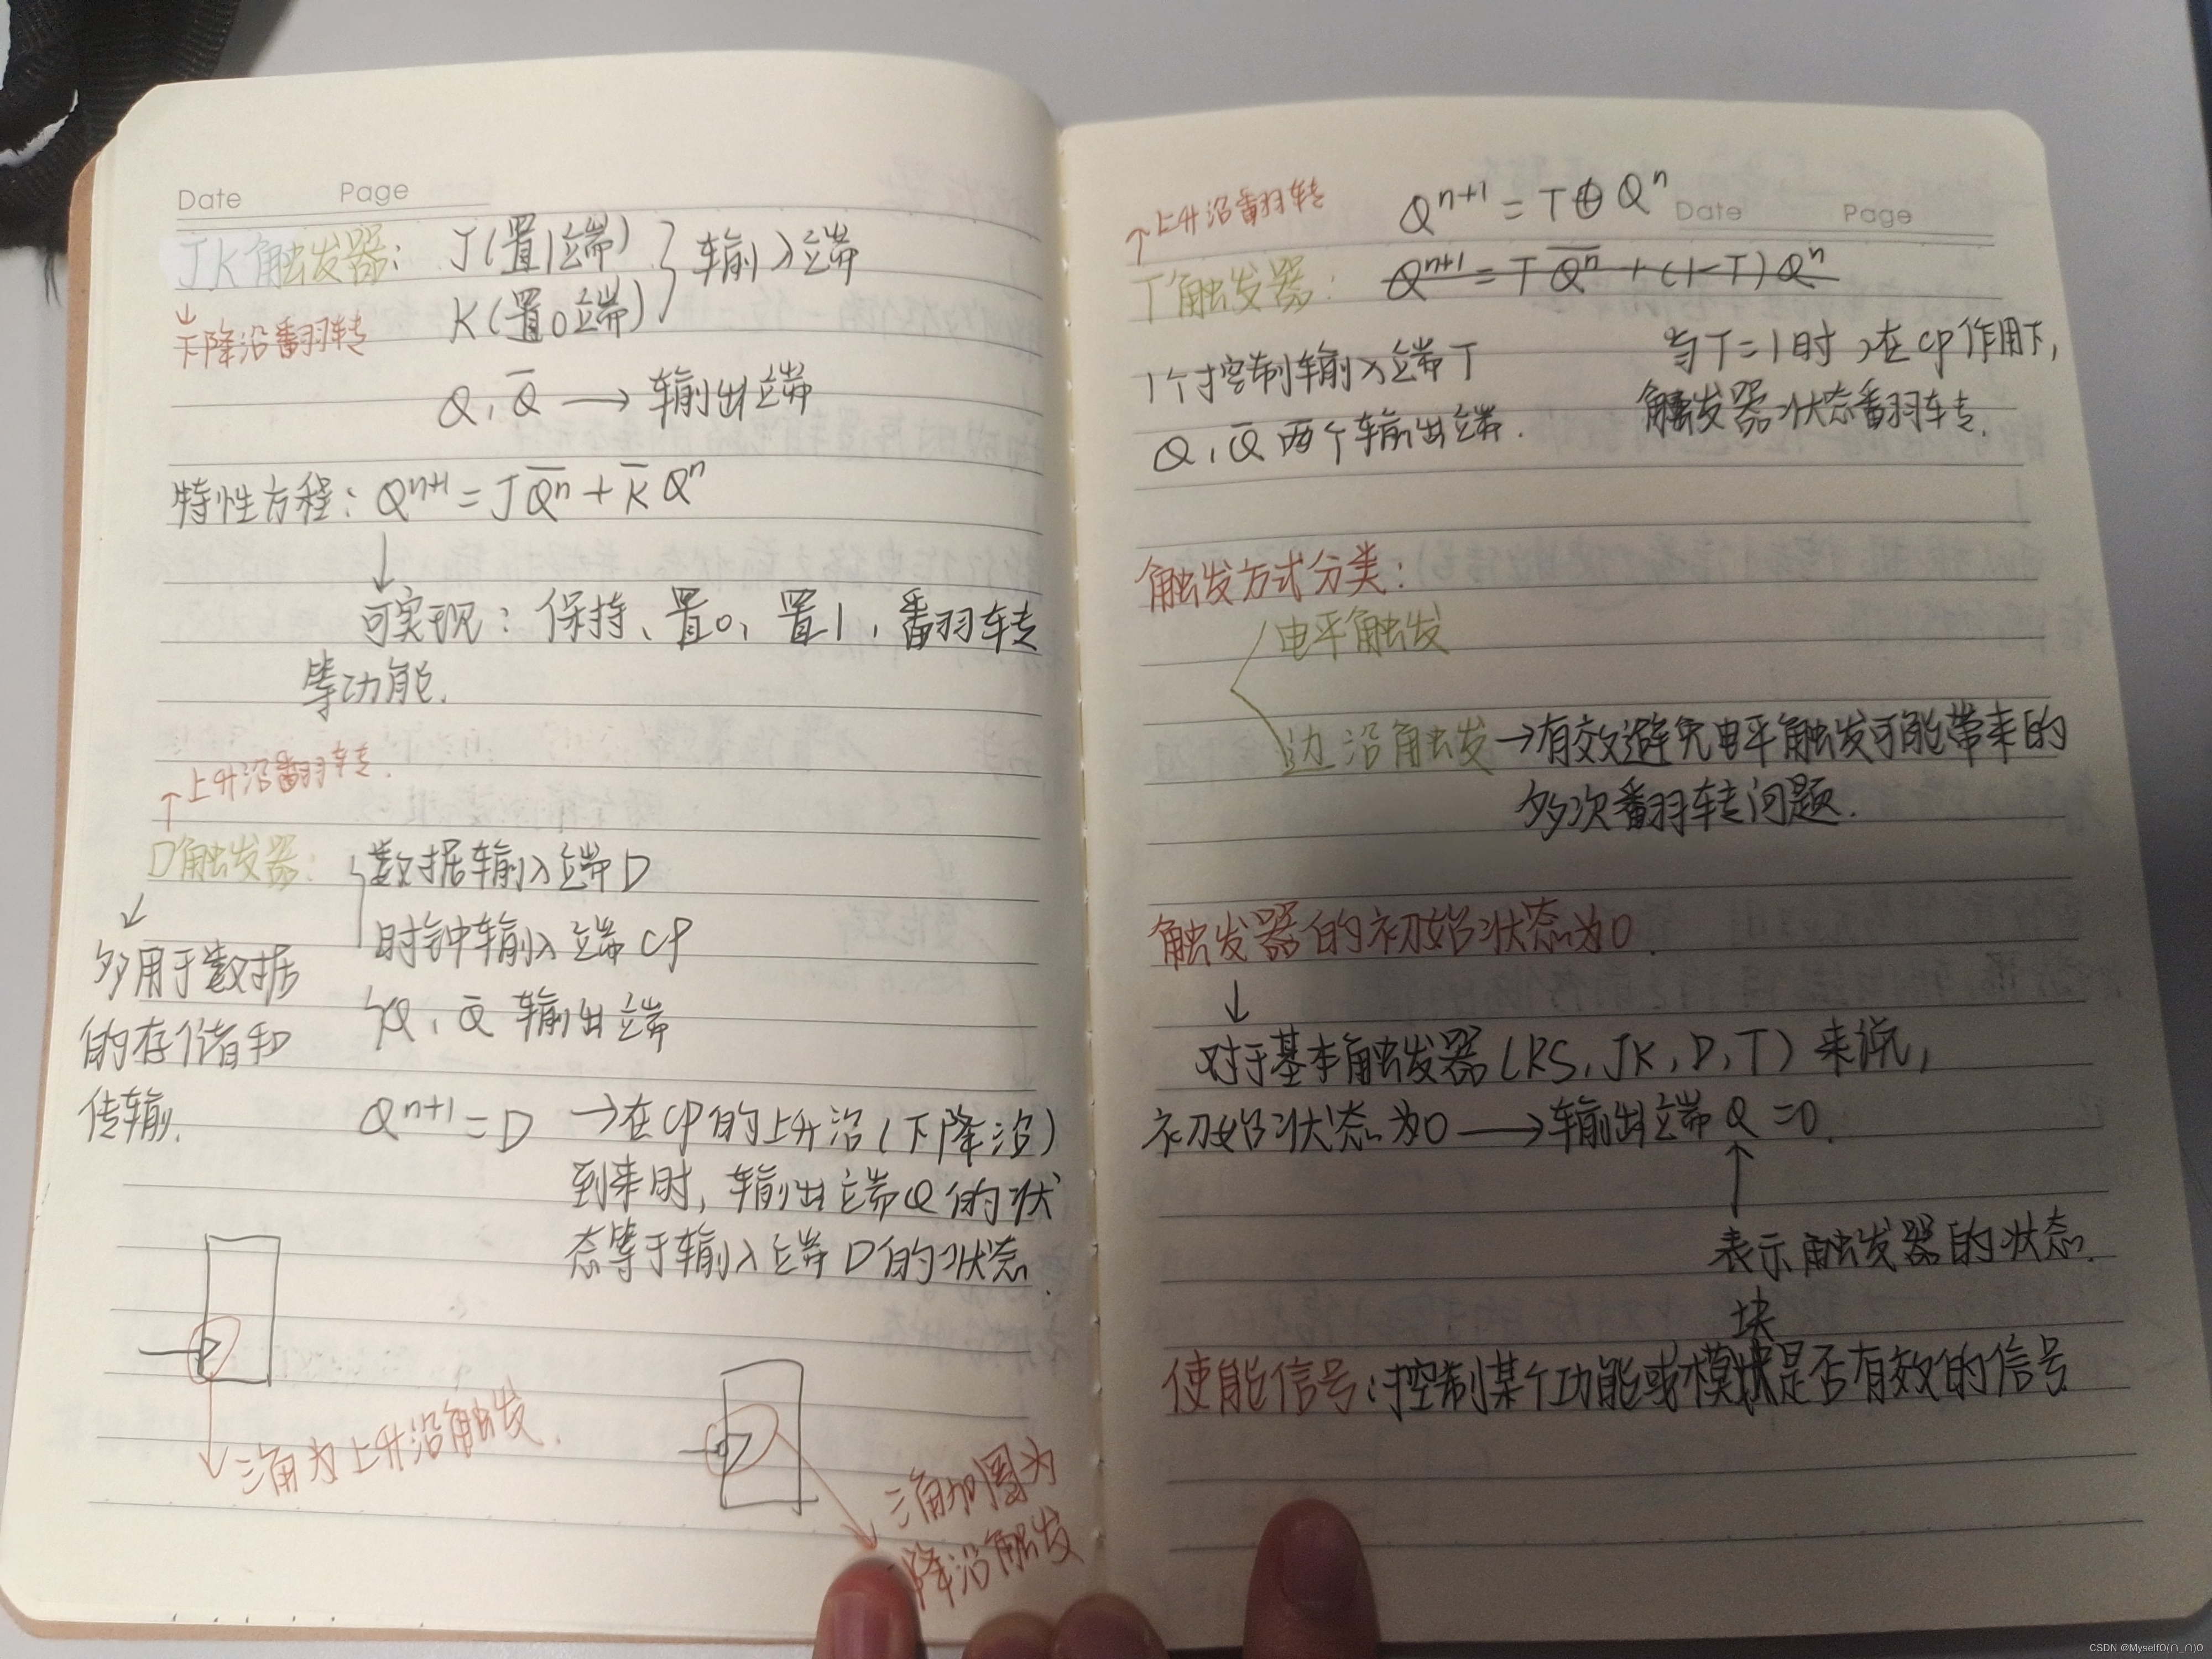 Date Page
JK触发器: J(置1端) } 输入端
K(置0端)
↓
下降沿翻转
Q, Q̅ → 输出端
特性方程: Qⁿ⁺¹ = J Q̅ⁿ + K̅ Qⁿ
↓
可实现: 保持、置0, 置1, 翻转
等功能.
↑上升沿翻转.
D触发器: { 数据输入端D
时钟输入端 CP
Q, Q̅ 输出端
↓
多用于数据
的存储和
传输.
Qⁿ⁺¹ = D → 在CP的上升沿(下降沿)
到来时, 输出端Q的状
态等于输入端D的状态.
三角为上升沿触发.
三角加圈为
降沿触发
Date Page
↑上升沿翻转
Qⁿ⁺¹ = T⊕Qⁿ
T触发器: Qⁿ⁺¹ = T Q̅ⁿ + (1-T)Qⁿ
1个控制输入端T
Q, Q̅ 两个输出端.
当T=1时,在CP作用下,
触发器状态翻转.
触发方式分类:
电平触发
边沿触发→有效避免电平触发可能带来的
多次翻转问题.
触发器的初始状态为0.
↓
对于基本触发器(RS, JK, D, T)来说,
初始状态为0 → 输出端 Q = 0.
↑
表示触发器的状态.
块
使能信号: 控制某个功能或模块是否有效的信号
CSDN @Myself0(∩_∩)0